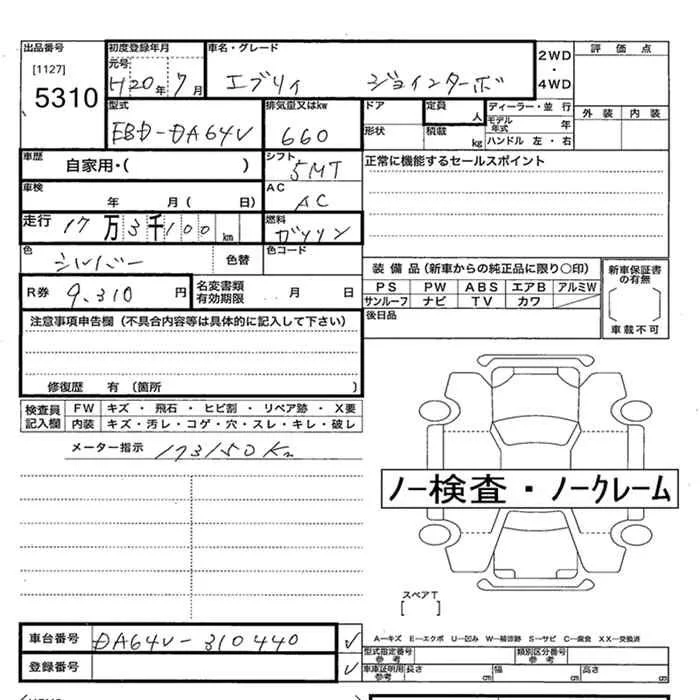 出品番号 初度登録年月 車名・グレード 2WD 評価点
[1127] 元号 ・
5310 H20年 7月 エブリイ ジョインターボ 4WD
型式 排気量又はkw ドア 定員 ディーラー・並 行 外装 内装
EBD-DA64V 660 人 モデル年式 年
形状 積載 kg ハンドル 左・右
車歴 自家用・( ) シフト 5MT 正常に機能するセールスポイント
車検 年 月( 日) AC AC
走行 17万3千100km 燃料 ガソリン
色 シルバー 色替 色コード
装備品(新車からの純正品に限り○印) 新車保証書の有無
R券 9,310円 名変書類有効期限 月 日 PS PW ABS エアB アルミW
サンルーフ ナビ TV カワ
注意事項申告欄(不具合内容等は具体的に記入して下さい) 後日品 車載不可
修復歴 有(箇所 )
検査員記入欄 FW キズ・飛石・ヒビ割・リペア跡・X要
内装 キズ・汚レ・コゲ・穴・スレ・キレ・破レ
メーター指示 173150Km
ノー検査・ノークレーム
スペアT
[ ]
車台番号 DA64V-310440 ✓ A-キズ E-エクボ U-凹み W-補修跡 S-サビ C-腐食 XX-交換済
型式指定番号参考 類別区分番号参考
登録番号 ✓ 車庫証明用参考 長さ cm 幅 cm 高さ cm